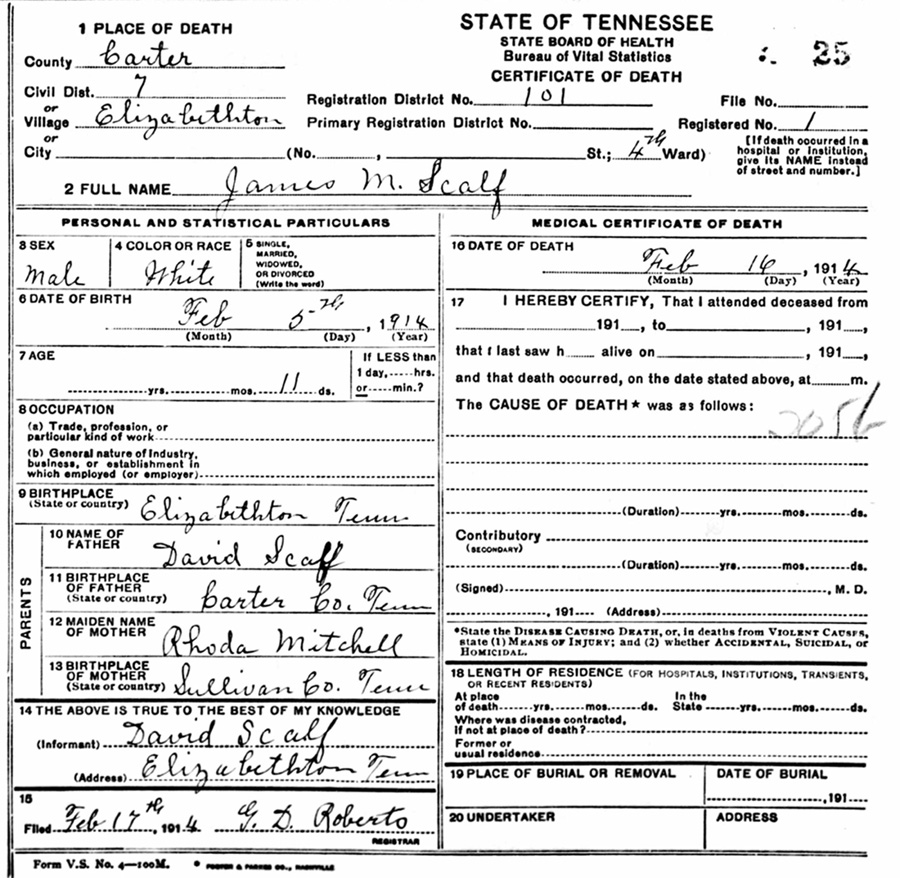 STATE OF TENNESSEE
STATE BOARD OF HEALTH
Bureau of Vital Statistics
CERTIFICATE OF DEATH
25
1 PLACE OF DEATH
County Carter
Civil Dist. 7
or
Village Elizabethton
or
City (No. , St.; 4th Ward)
Registration District No. 101 File No.
Primary Registration District No. Registered No. 1
[If death occurred in a
hospital or institution,
give its NAME instead
of street and number.]
2 FULL NAME James M. Scalf
PERSONAL AND STATISTICAL PARTICULARS
3 SEX
Male
4 COLOR OR RACE
White
5 SINGLE,
MARRIED,
WIDOWED,
OR DIVORCED
(Write the word)
6 DATE OF BIRTH
Feb 5th, 1914
(Month) (Day) (Year)
7 AGE
yrs. mos. 11 ds.
If LESS than
1 day, hrs.
or min.?
8 OCCUPATION
(a) Trade, profession, or
particular kind of work
(b) General nature of Industry,
business, or establishment in
which employed (or employer)
9 BIRTHPLACE
(State or country) Elizabethton Tenn
PARENTS
10 NAME OF
FATHER David Scalf
11 BIRTHPLACE
OF FATHER
(State or country) Carter Co. Tenn
12 MAIDEN NAME
OF MOTHER Rhoda Mitchell
13 BIRTHPLACE
OF MOTHER
(State or country) Sullivan Co. Tenn
14 THE ABOVE IS TRUE TO THE BEST OF MY KNOWLEDGE
(Informant) David Scalf
(Address) Elizabethton Tenn
15
Filed Feb 17th, 1914 G. D. Roberts
REGISTRAR
MEDICAL CERTIFICATE OF DEATH
16 DATE OF DEATH
Feb 16, 1914
(Month) (Day) (Year)
17 I HEREBY CERTIFY, That I attended deceased from
191 , to , 191 ,
that I last saw h alive on , 191 ,
and that death occurred, on the date stated above, at m.
The CAUSE OF DEATH* was as follows:
(Duration) yrs. mos. ds.
Contributory
(SECONDARY)
(Duration) yrs. mos. ds.
(Signed) , M. D.
, 191 (Address)
*State the DISEASE CAUSING DEATH, or, in deaths from VIOLENT CAUSES,
state (1) MEANS OF INJURY; and (2) whether ACCIDENTAL, SUICIDAL, or
HOMICIDAL.
18 LENGTH OF RESIDENCE (FOR HOSPITALS, INSTITUTIONS, TRANSIENTS,
OR RECENT RESIDENTS)
At place In the
of death yrs. mos. ds. State yrs. mos. ds.
Where was disease contracted,
If not at place of death?
Former or
usual residence
19 PLACE OF BURIAL OR REMOVAL
DATE OF BURIAL
, 191
20 UNDERTAKER
ADDRESS
Form V.S. No. 4—100M.